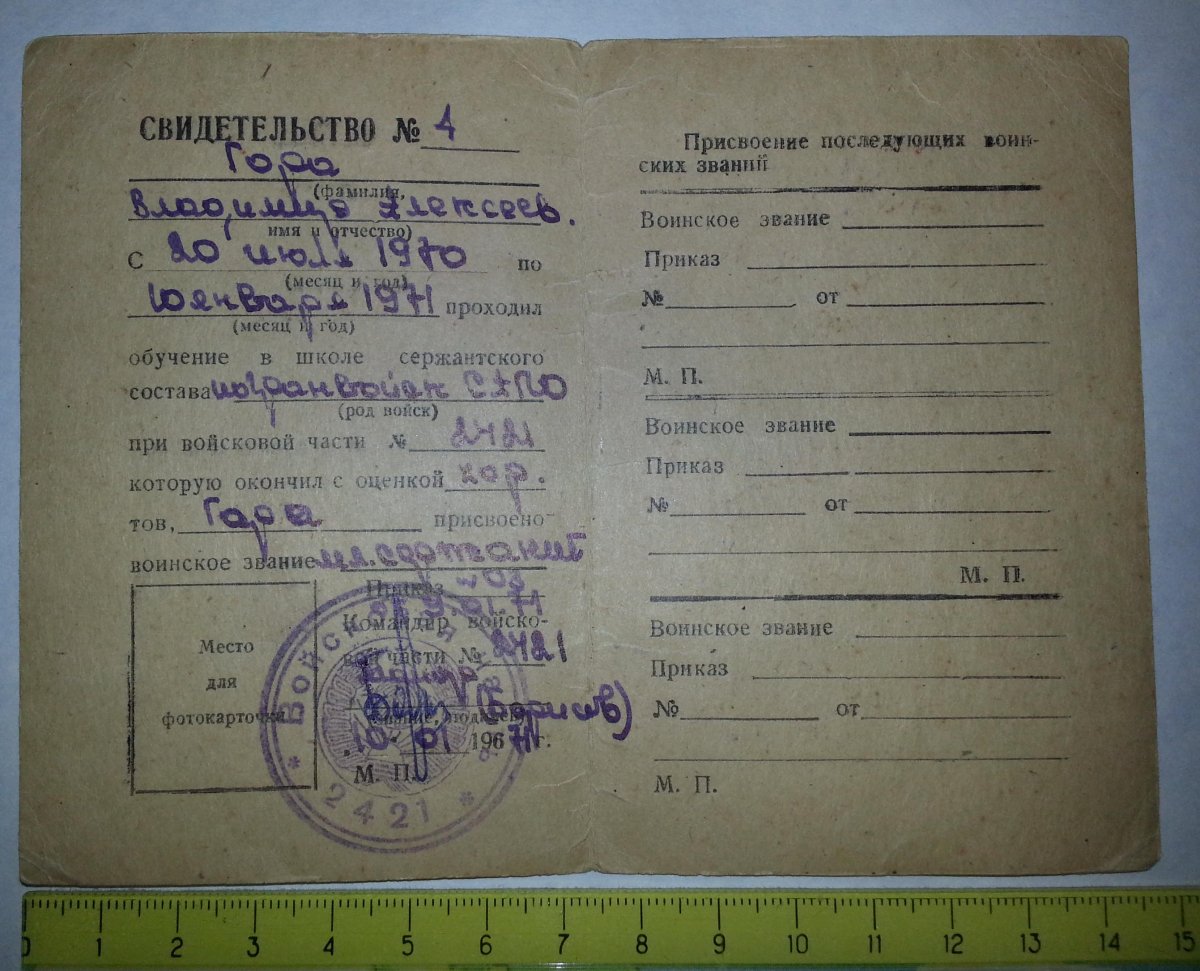 СВИДЕТЕЛЬСТВО № 4
Гора
(фамилия,
Владимир Алексеев.
имя и отчество)
С 20 июля 1970 по
(месяц и год)
10 января 1971 проходил
(месяц и год)
обучение в школе сержантского
состава погранвойск САПО
(род войск)
при войсковой части № 2421
которую окончил с оценкой хор.
тов, Гора присвоено
воинское звание мл. сержант
Приказ № 03
9.01.71
Командир войско-
вой части № 2421
(Борисов)
10 01 1971 г.
М. П.
Место
для
фотокарточки
Войсковая
* 2421 *
Присвоение последующих воин-
ских званий
Воинское звание
Приказ
№ от
М. П.
Воинское звание
Приказ
№ от
М. П.
Воинское звание
Приказ
№ от
М. П.
0 1 2 3 4 5 6 7 8 9 10 11 12 13 14 15